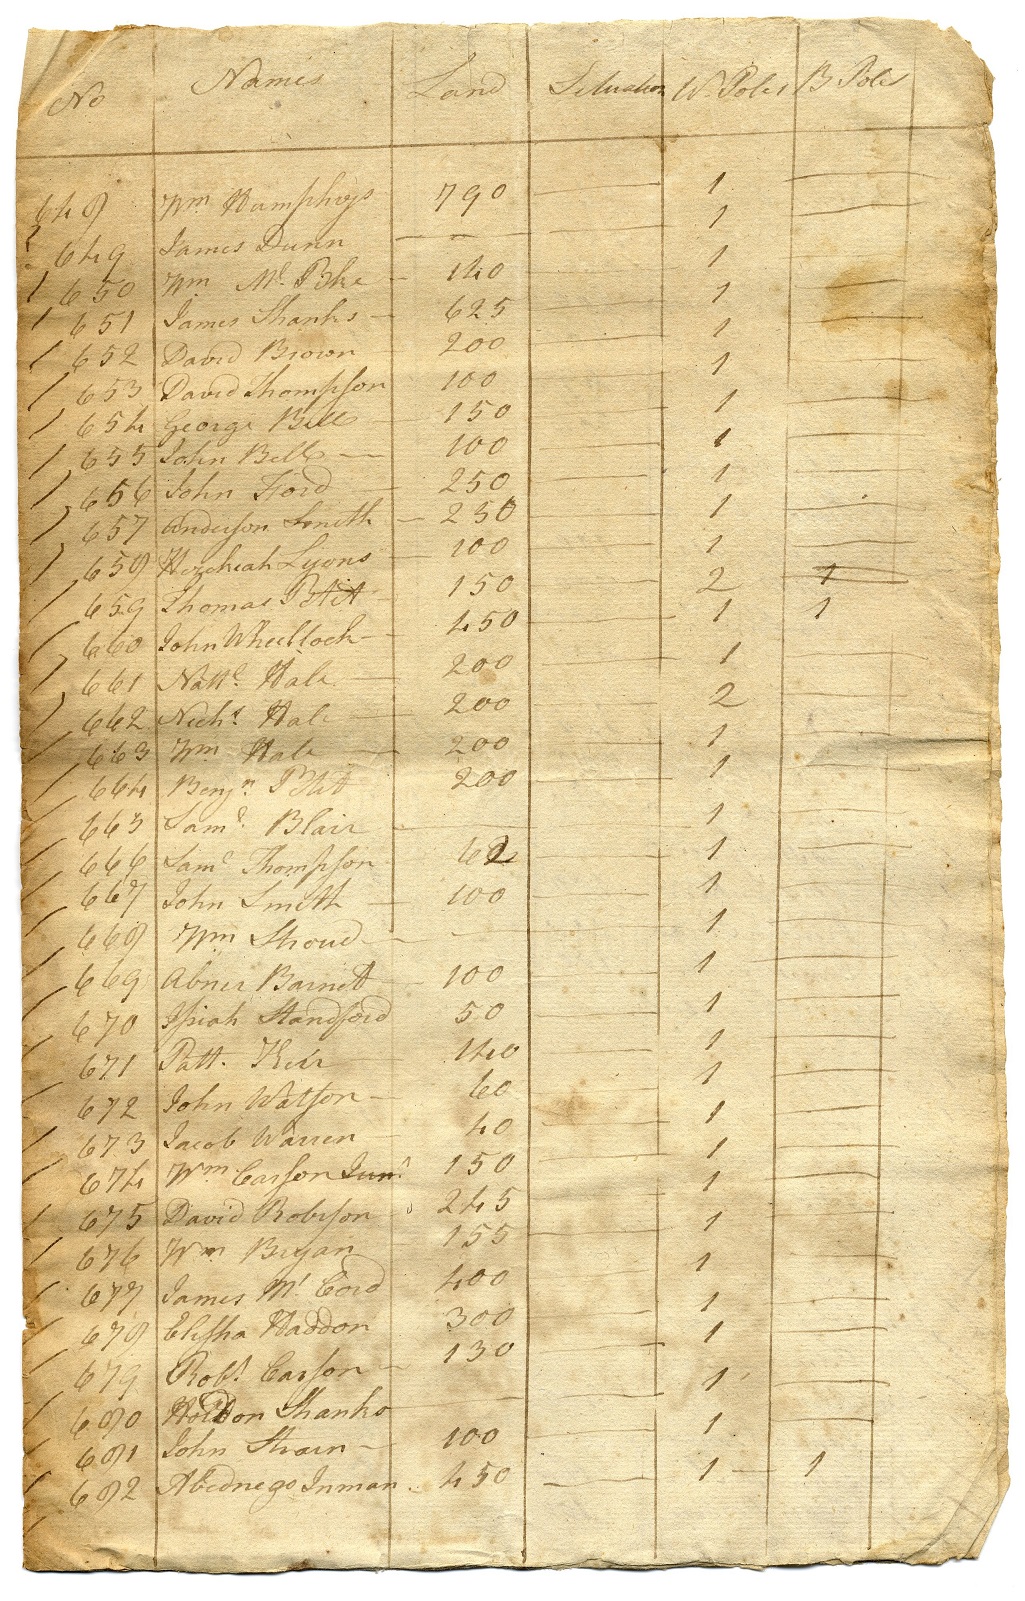 No Names Land Situation W. Poles B Poles
648 Wm Humphrys 790 1
649 James Dunn 1
650 Wm Mc. 140 1
651 James Shanks 625 1
652 David Brown 200 1
653 David Thompson 100 1
654 George Bell 150 1
655 John Bell 100 1
656 John Ford 250 1
657 Anderson Smith 250 1
658 Hezekiah Lyons 100 1
659 Thomas 150 2 1
660 John Wheellock 450 1 1
661 Nathl. Hale 200 1
662 Nichs. Hale 200 2
663 Wm Hale 200 1
664 Benjn. 200 1
665 Saml. Blair 1
666 Saml Thompson 62 1
667 John Smith 100 1
668 Wm Stroud 1
669 Abner Barnett 100 1
670 Standford 50 1
671 Patt. Keir 140 1
672 John Watson 60 1
673 Jacob Warren 40 1
674 Wm Carson Junr. 150 1
675 David Robeson 245 1
676 Wm Bryan 155 1
677 James Mc Cord 400 1
678 Elisha Haddon 300 1
679 Robt. Carson 130 1
680 Shanks 1
681 John Strain 100 1
682 Abednego Inman 450 1 1